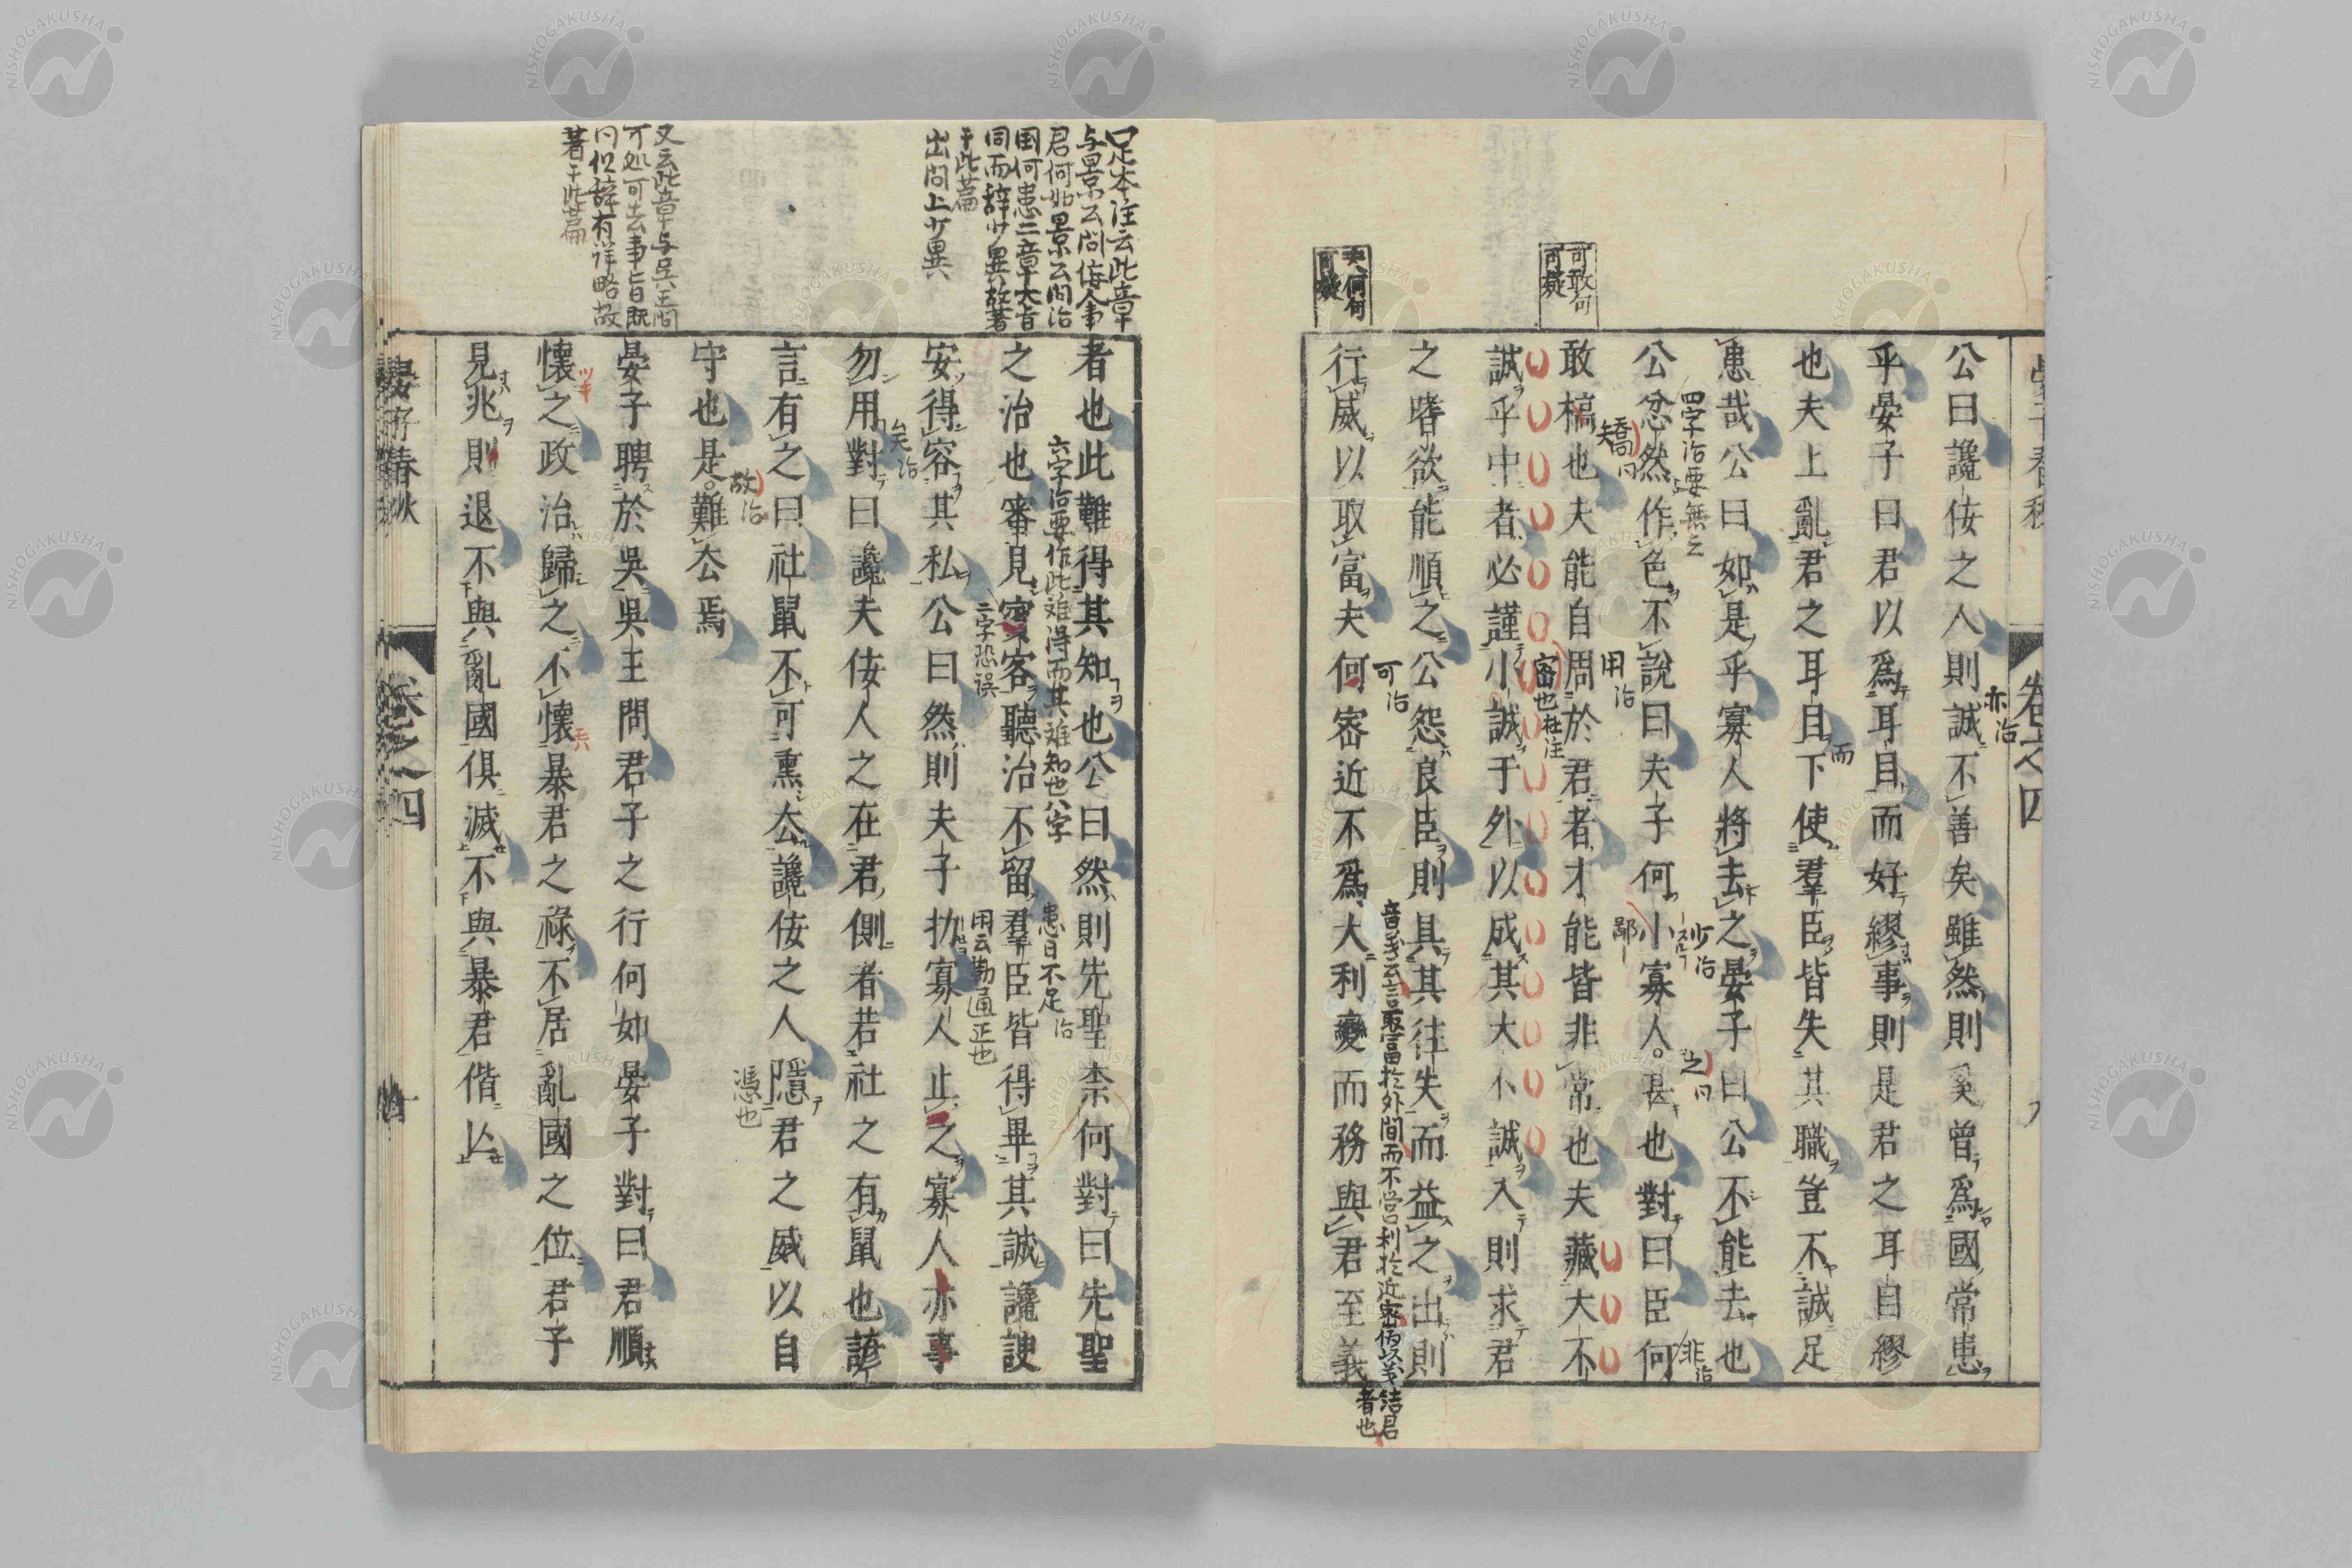 公曰讒佞之人則誠不善矣雖然則奚曾爲國常患
乎晏子曰君以爲耳目而好繆事則是君之耳目繆
也夫上亂君之耳目下使羣臣皆失其職豈不誠足
患哉公曰如是乎寡人將去之晏子曰公不能去也
公忿然作色不說曰夫子何小寡人甚也對曰臣何
敢槁也夫能自周於君者才能皆非常也夫藏大不
誠乎中者必謹小誠于外以成其大不誠入則求君
之嗜欲能順之公怨良臣則具其往失而益之出則
行威以取富夫何密近不爲大利變而務與君至義
者也此難得其知也公曰然則先聖柰何對曰先聖
之治也審見賓客聽治不留羣臣皆得畢其誠讒諛
安得容其私公曰然則夫子扐寡人止之寡人亦事
勿用對曰讒夫佞人之在君側者若社之有鼠也諺
言有之曰社鼠不可熏厺讒佞之人隱君之威以自
守也是難厺焉
晏子聘於吳吳王問君子之行何如晏子對曰君順
懷之政治歸之不懷暴君之祿不居亂國之位君子
見兆則退不與亂國俱滅不與暴君偕亾
晏子春秋
卷之四
可敢何
可疑
夫何何
可疑
亦治
而
四字治要無之
少治
之同
非治
矯同
用治
鄙
審也杜注
可治
音義云言取富於外間而不営利於近密偽以義結君
者也
口足本注云此章
与景公問佞人事
君何如景公問治
国何患二章大旨
同而辞少異故著
于此篇
出問上少異
六字治要作此难得而其难知也八字
患日不足治
二字恐誤
用云勤通正也
矣治
故治
憑也
又云此章与呉王問
可処可去事旨既
同但辞有详略故
著于此篇